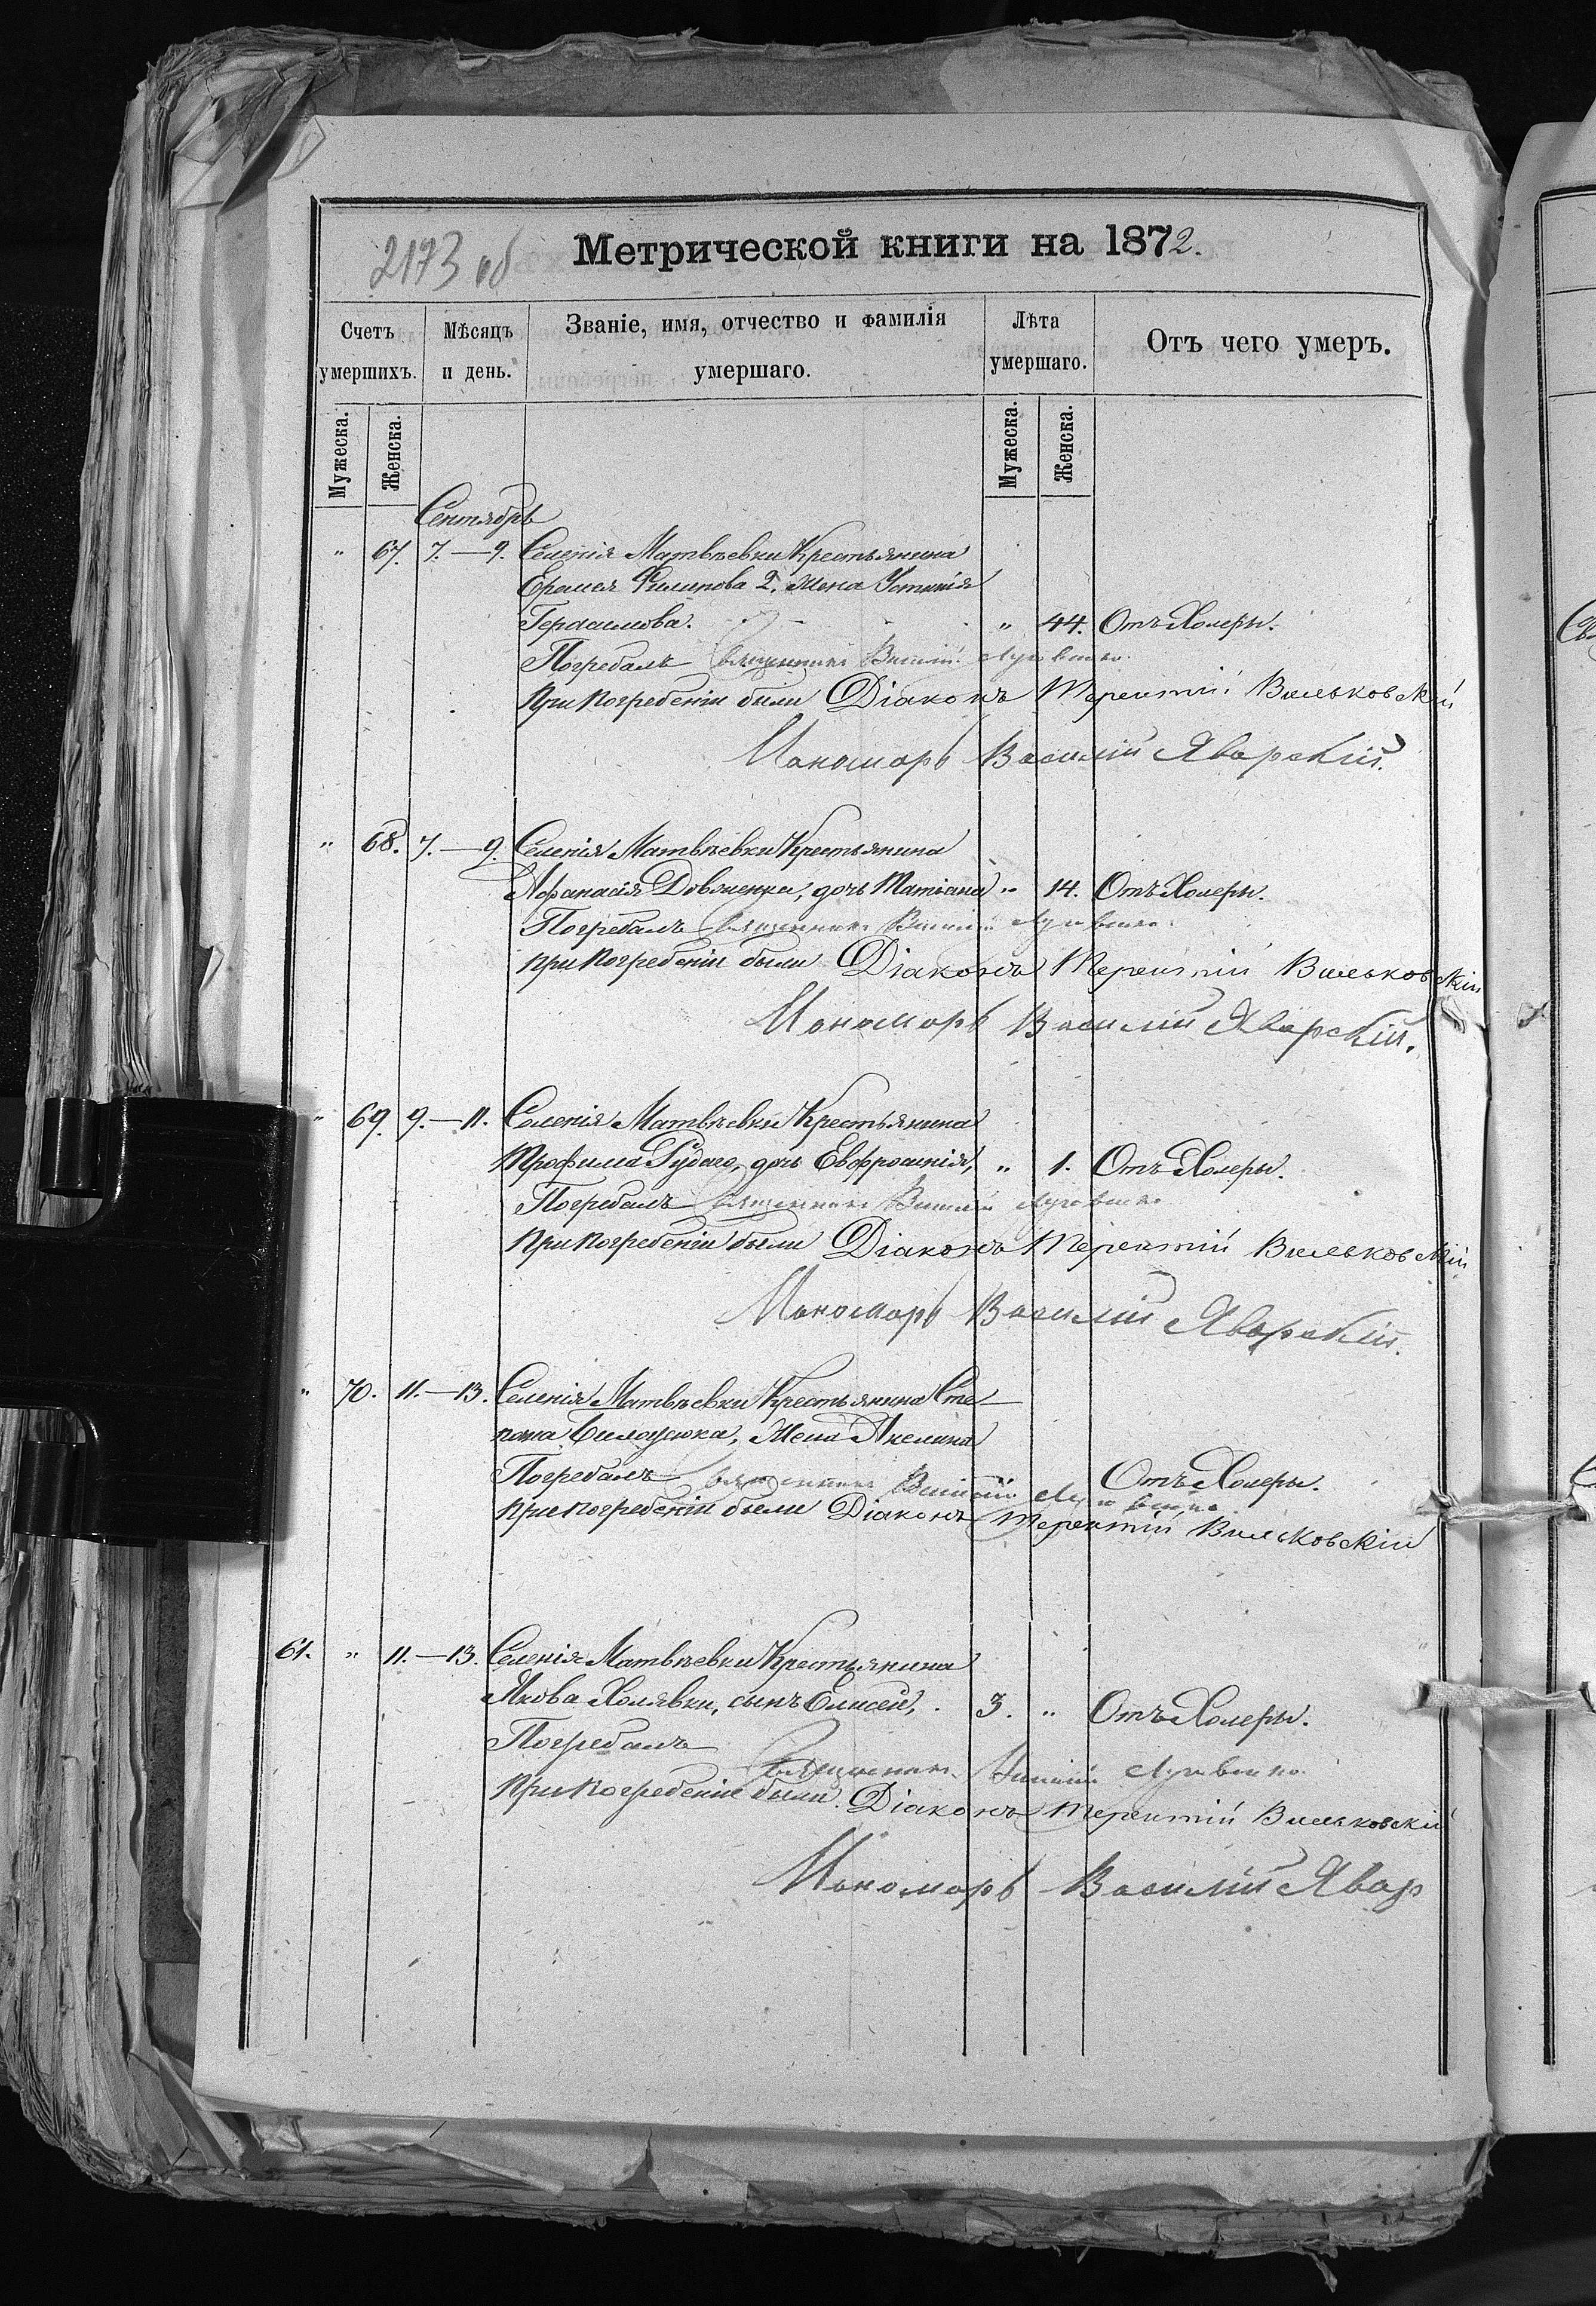 2173 об
Метрической книги на 1872.
Счетъ умершихъ.
Мѣсяцъ и день.
Званіе, имя, отчество и фамилія умершаго.
Лѣта умершаго.
Отъ чего умеръ.
Мужеска.
Женска.
Мужеска.
Женска.
Сентябрь
" 67. 7.—9. Селенія Матвѣевки Крестьянина
Филипова 2. жена Устинія
Герасимова. " 44. Отъ Холеры.
Погребалъ Священникъ
При погребеніи были Діаконъ Терентий Вильковскій
Пономарь Василій Яворскій.
" 68. 7.—9. Селенія Матвѣевки Крестьянина
Афанасія Довженка, дочь Матіана " 14. Отъ Холеры.
Погребалъ Священникъ
При погребеніи были Діаконъ Терентій Вильковскій
Пономарь Василій Яворскій.
" 69. 9.—11. Селенія Матвѣевки Крестьянина
Трофима Рудаго, дочь Евфросинія, " 1. Отъ Холеры.
Погребалъ Священникъ
При погребеніи были Діаконъ Терентій Вильковскій
Пономарь Василій Яворскій.
" 70. 11.—13. Селенія Матвѣевки Крестьянина Сте-
пана Билоусюка, жена Акелина
Погребалъ Священникъ Отъ Холеры.
При погребеніи были Діаконъ Терентій Вильковскій
61. " 11.—13. Селенія Матвѣевки Крестьянина
Якова Холявки, сынъ Елисей, 3. " Отъ Холеры.
Погребалъ
Священникъ
При погребеніи были Діаконъ Терентий Вильковскій
Пономарь Василій Явор